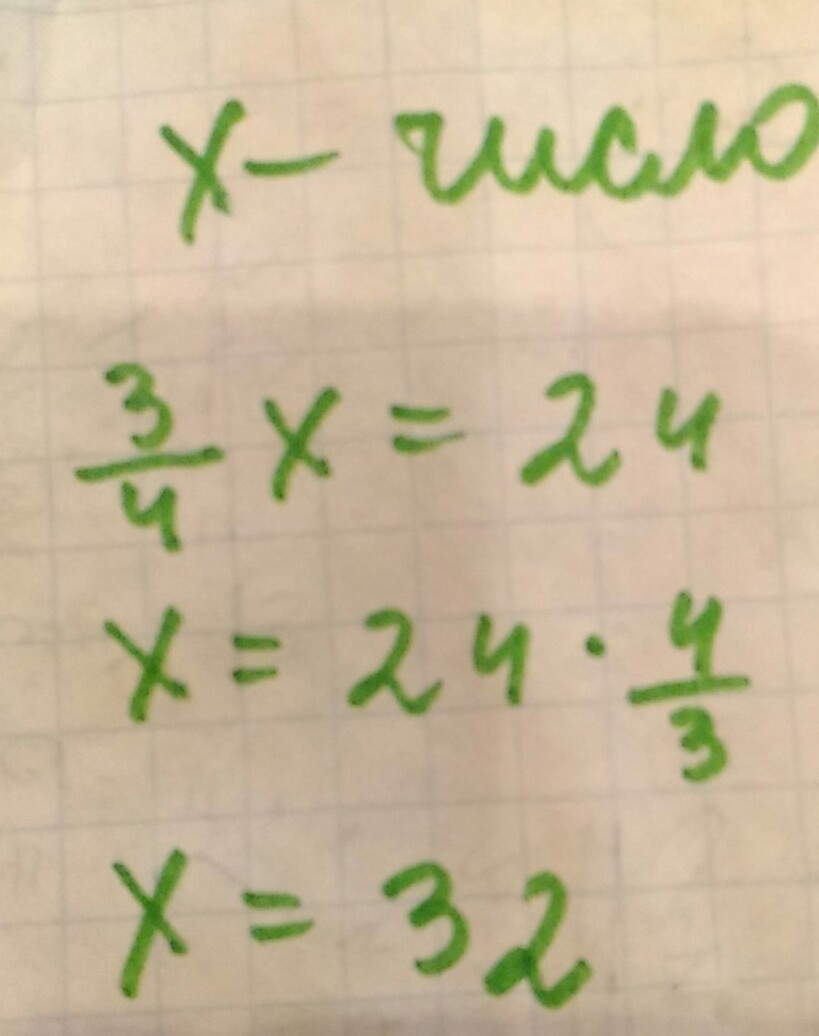 x — число
3/4 x = 24
x = 24 · 4/3
x = 32